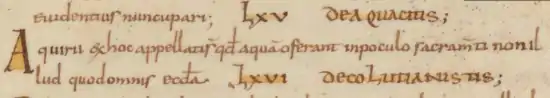 euidentius nuncupari; Lxv DE AQUACIIIS;
Aquirii ex hoc appellati s̄ qđ aquā oferant in poculo sacram̄ti non il
lud quod omnis eccl̄a Lxvi DE COLUTIANISTIS;